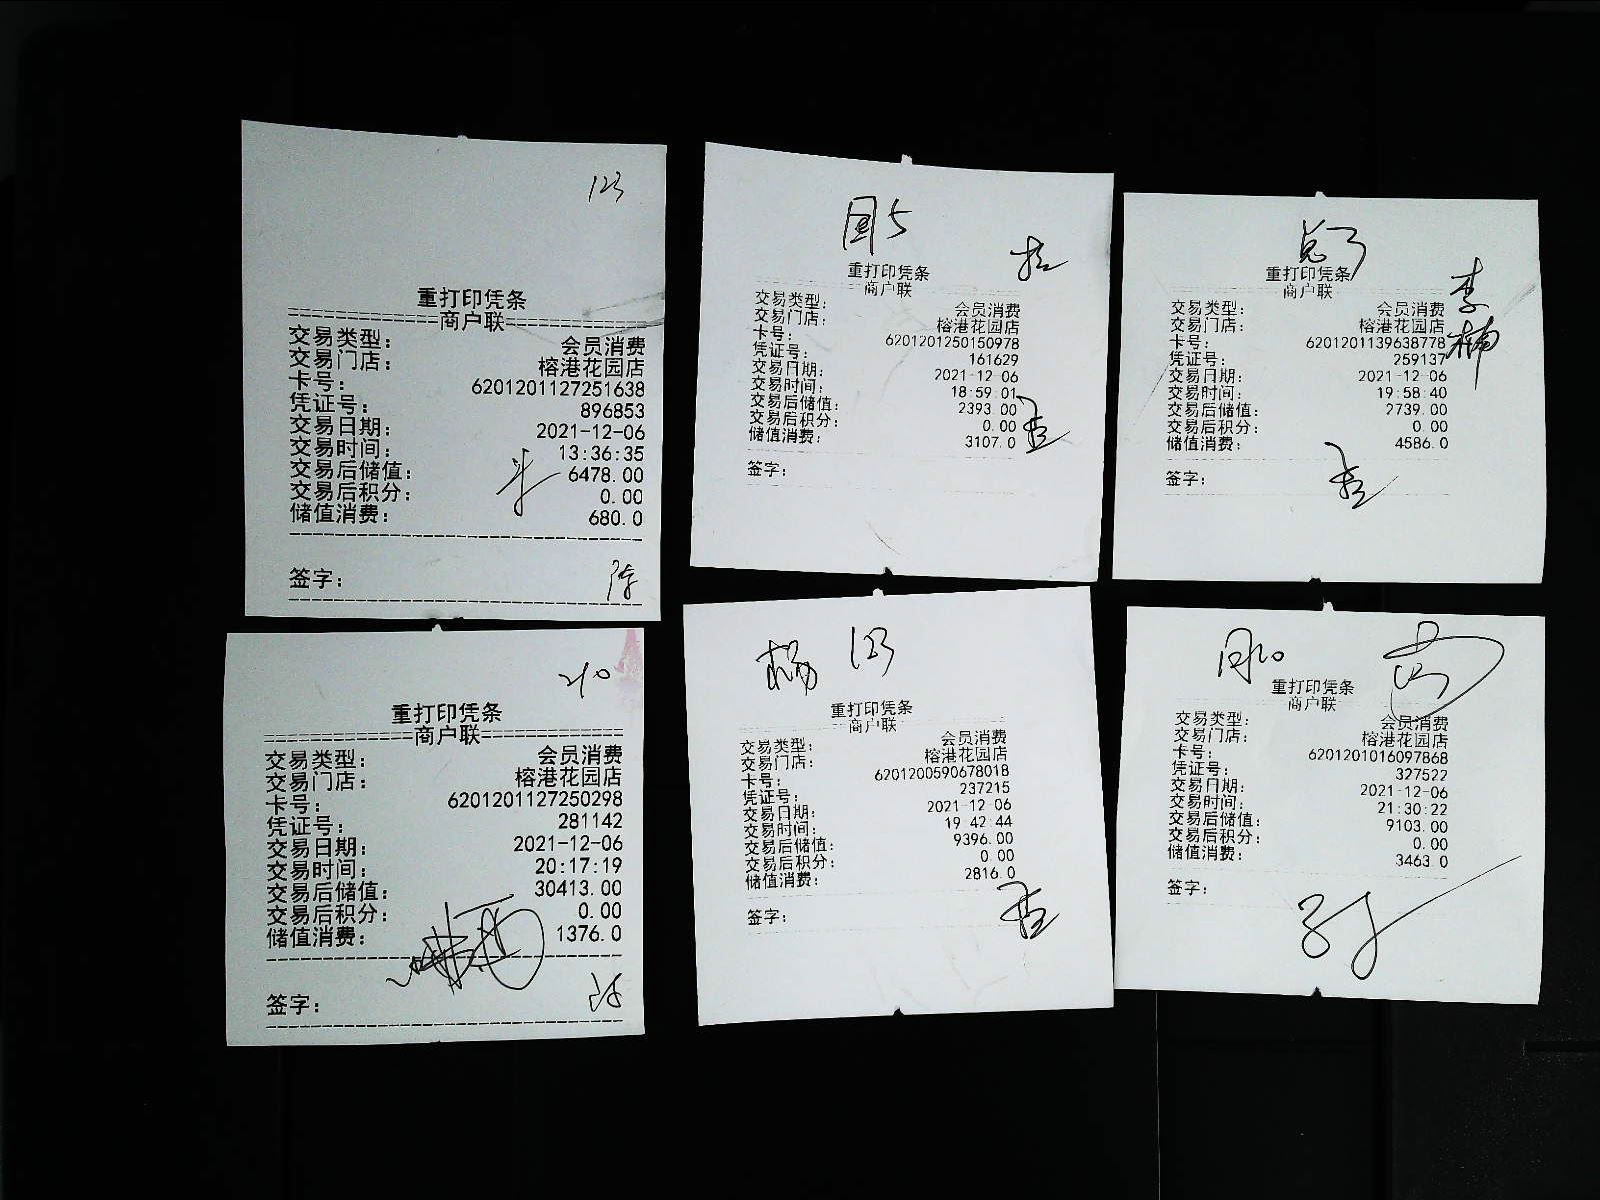 123
重打印凭条
商户联
交易类型: 会员消费
交易门店: 榕港花园店
卡号: 6201201127251638
凭证号: 896853
交易日期: 2021-12-06
交易时间: 13:36:35
交易后储值: 6478.00
交易后积分: 0.00
储值消费: 680.0
签字:
重打印凭条
商户联
交易类型: 会员消费
交易门店: 榕港花园店
卡号: 6201201250150978
凭证号: 161629
交易日期: 2021-12-06
交易时间: 18:59:01
交易后储值: 2393.00
交易后积分: 0.00
储值消费: 3107.0
签字:
重打印凭条
商户联
李楠
交易类型: 会员消费
交易门店: 榕港花园店
卡号: 6201201139638778
凭证号: 259137
交易日期: 2021-12-06
交易时间: 19:58:40
交易后储值: 2739.00
交易后积分: 0.00
储值消费: 4586.0
签字:
210
重打印凭条
商户联
交易类型: 会员消费
交易门店: 榕港花园店
卡号: 6201201127250298
凭证号: 281142
交易日期: 2021-12-06
交易时间: 20:17:19
交易后储值: 30413.00
交易后积分: 0.00
储值消费: 1376.0
签字:
杨 123
重打印凭条
商户联
交易类型: 会员消费
交易门店: 榕港花园店
卡号: 6201200590678018
凭证号: 237215
交易日期: 2021-12-06
交易时间: 19:42:44
交易后储值: 9396.00
交易后积分: 0.00
储值消费: 2816.0
签字:
重打印凭条
商户联
交易类型: 会员消费
交易门店: 榕港花园店
卡号: 6201201016097868
凭证号: 327522
交易日期: 2021-12-06
交易时间: 21:30:22
交易后储值: 9103.00
交易后积分: 0.00
储值消费: 3463.0
签字: